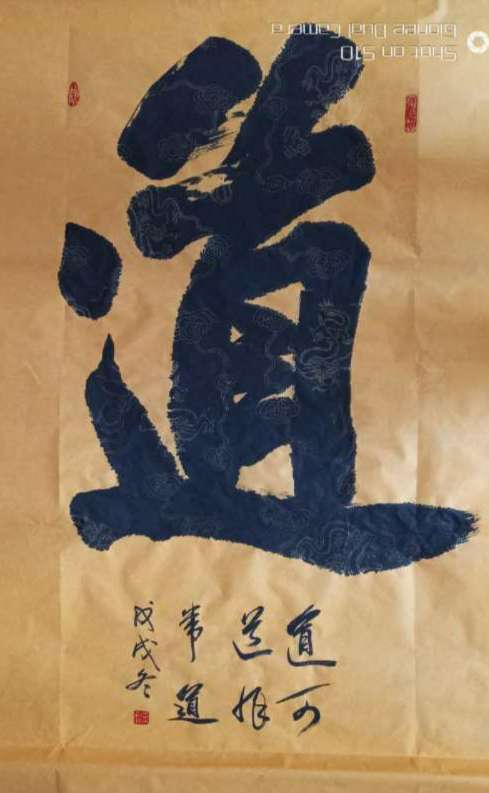 Shot on S10
Gionee Dual Camera
道
道可
道非
常道
戊戌冬